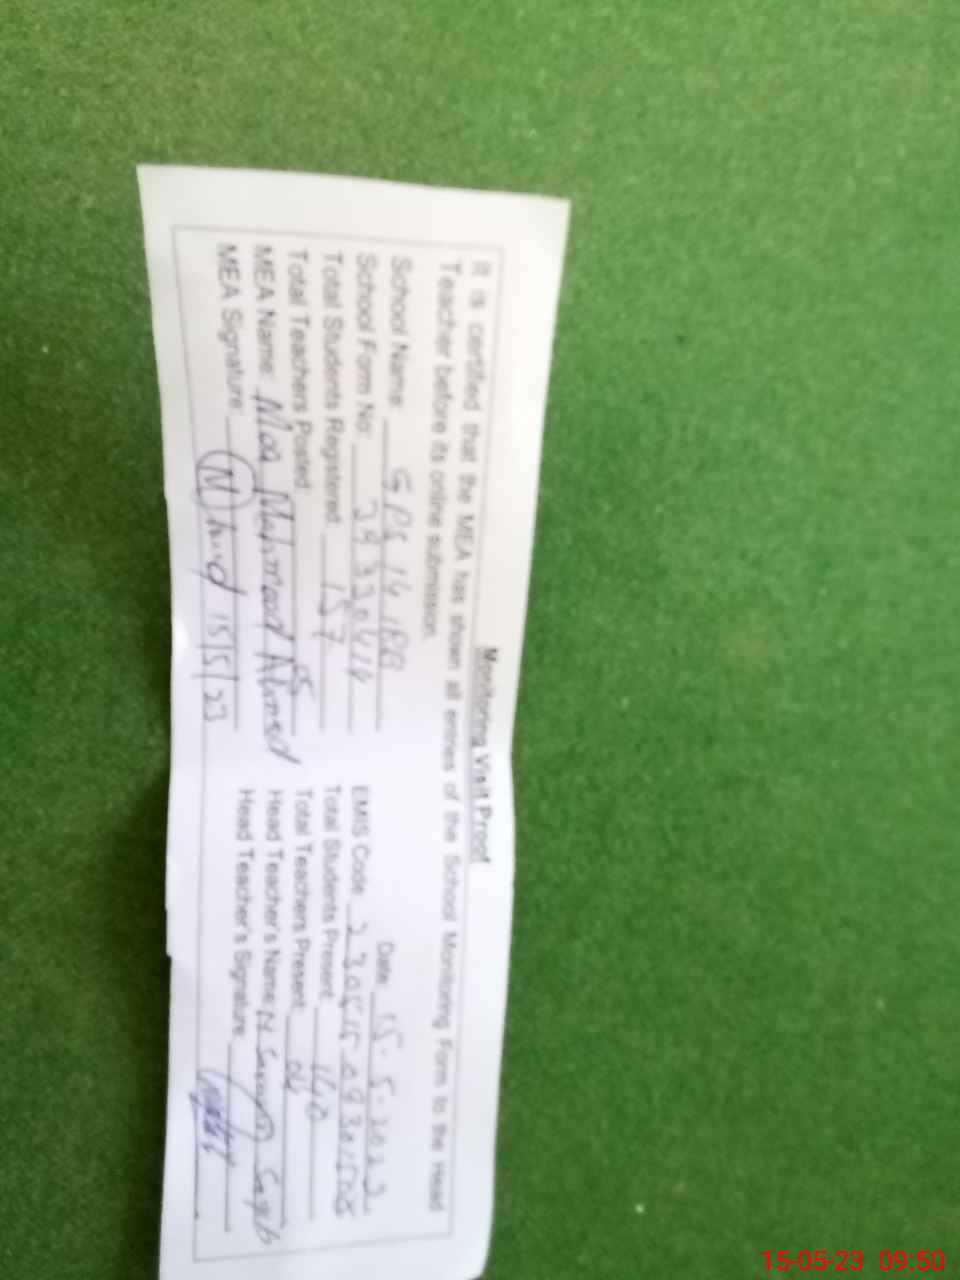 Monitoring Visit Proof
It is certified that the MEA has shown all entries of the School Monitoring Form to the Head
Teacher before its online submission.
Date: 15-5-2023
School Name: GPS 14
School Form No: EMIS Code:
Total Students Registered: 157 Total Students Present: 140
Total Teachers Posted: 05 Total Teachers Present: 04
MEA Name: Mahmood Ahmed Head Teacher's Name:
MEA Signature: 15/5/23 Head Teacher's Signature:
15-05-23 09:50